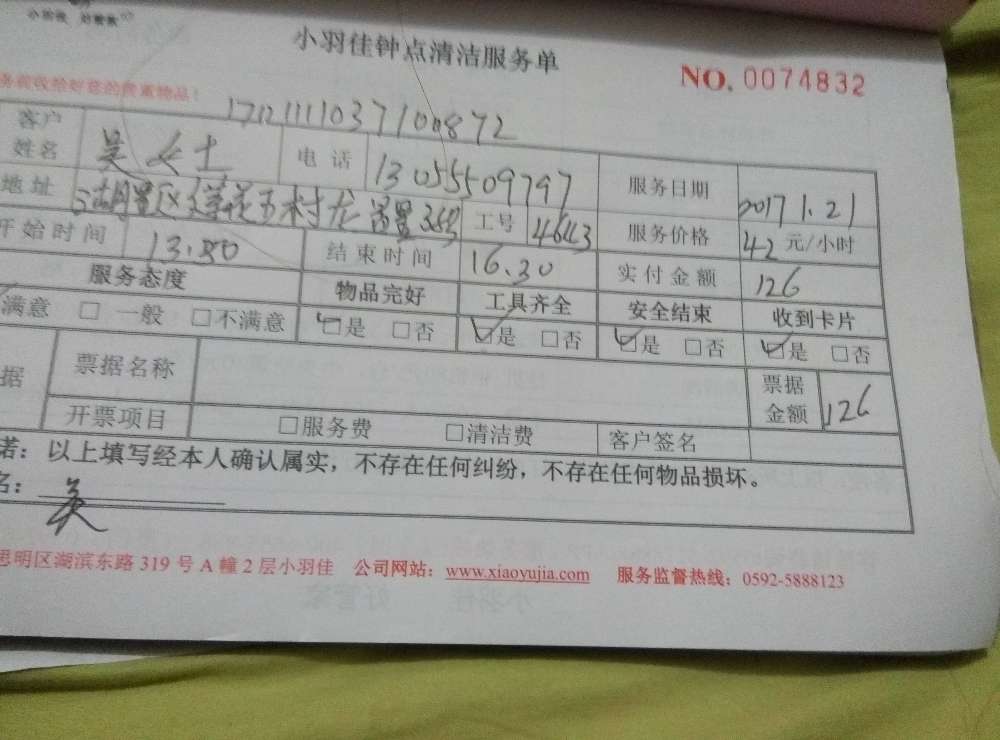 小羽佳 好管家
小羽佳钟点清洁服务单
NO. 0074832
务前收给好您的贵重物品!
客户姓名 吴女士 电话 13055509797 服务日期 2017 1.21
地址 工号 4643 服务价格 42 元/小时
开始时间 结束时间 16.30 实付金额 126
服务态度 物品完好 工具齐全 安全结束 收到卡片
满意 □ 一般 □不满意 ☑是 □否 ☑是 □否 ☑是 □否 ☑是 □否
据 票据名称 票据金额 126
开票项目 □服务费 □清洁费 客户签名
诺：以上填写经本人确认属实，不存在任何纠纷，不存在任何物品损坏。
名： 吴
思明区湖滨东路 319 号 A 幢 2 层小羽佳 公司网站：www.xiaoyujia.com 服务监督热线：0592-5888123